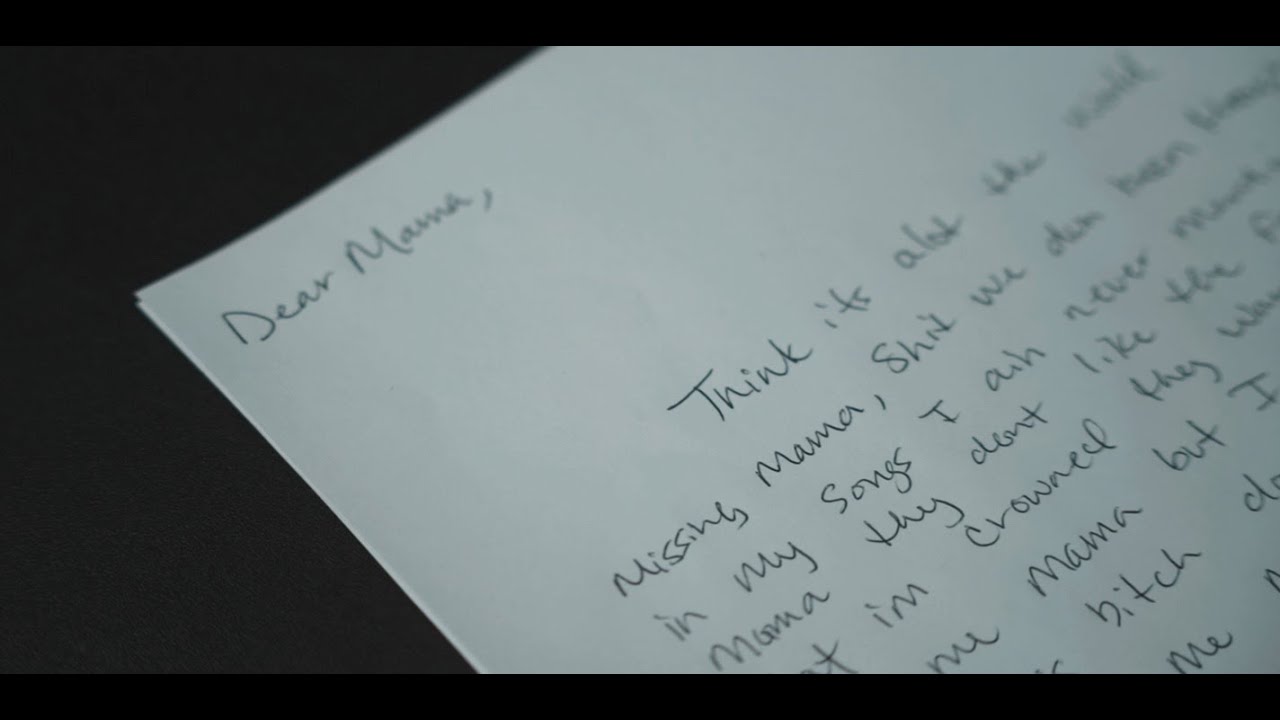 Dear Mama,
Think its alot the world
Missing Mama, Shit we don been through
in my songs I ain never
Mama they dont like the
im crowned they
me Mama but I
bitch
Me